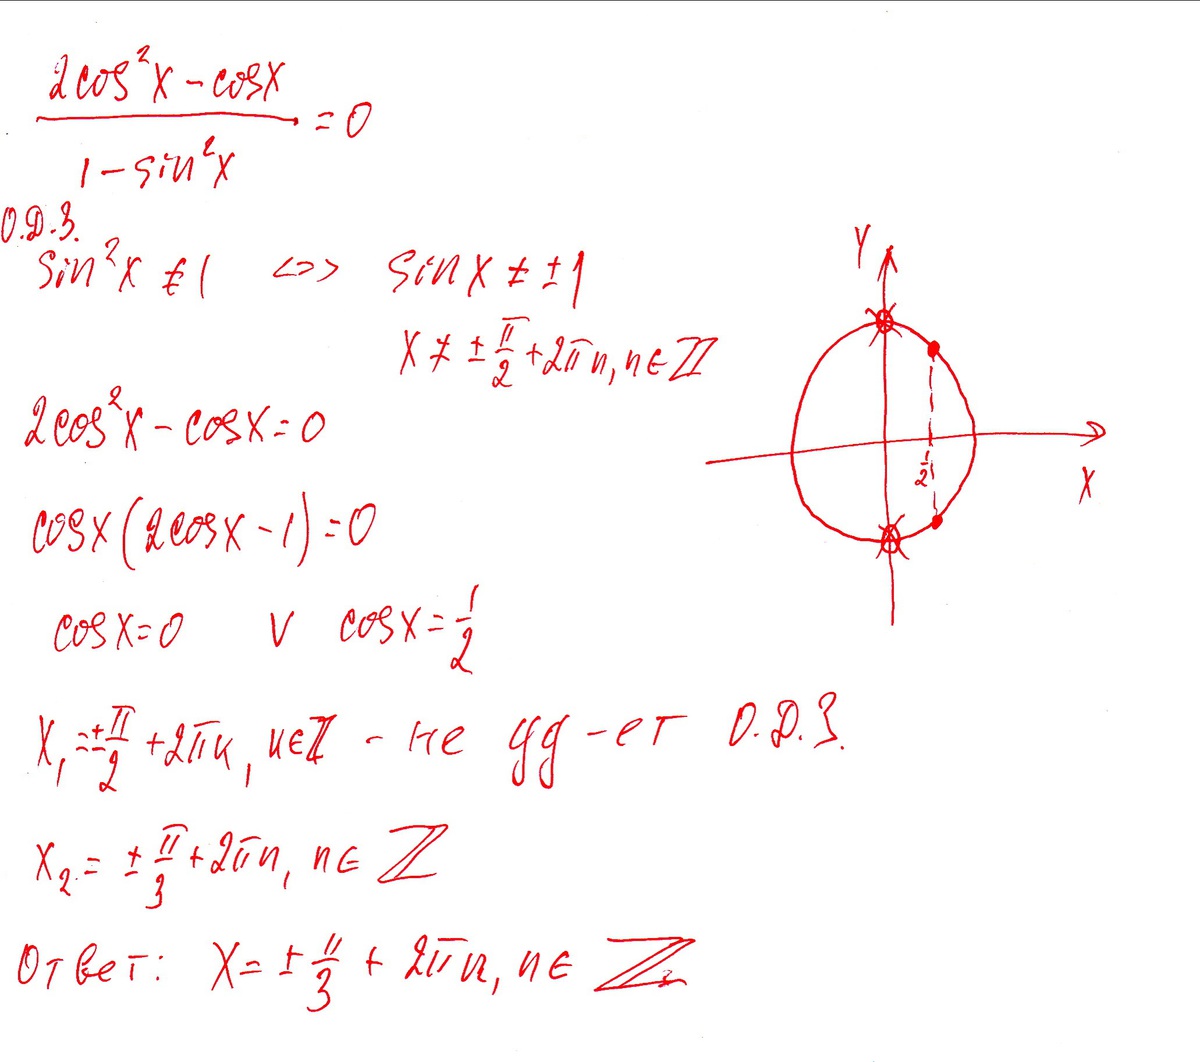 2cos²x - cosx
1 - sin²x = 0
О.Д.З.
sin²x ≠ 1 <=> sinx ≠ ±1
x ≠ ± π/2 + 2πn, n ∈ ℤ
2cos²x - cosx = 0
cosx(2cosx - 1) = 0
cosx = 0 ∨ cosx = 1/2
x₁ = ± π/2 + 2πn, n ∈ ℤ - не уд-ет О.Д.З.
x₂ = ± π/3 + 2πn, n ∈ ℤ
Ответ: x = ± π/3 + 2πn, n ∈ ℤ
Y
1/2
X